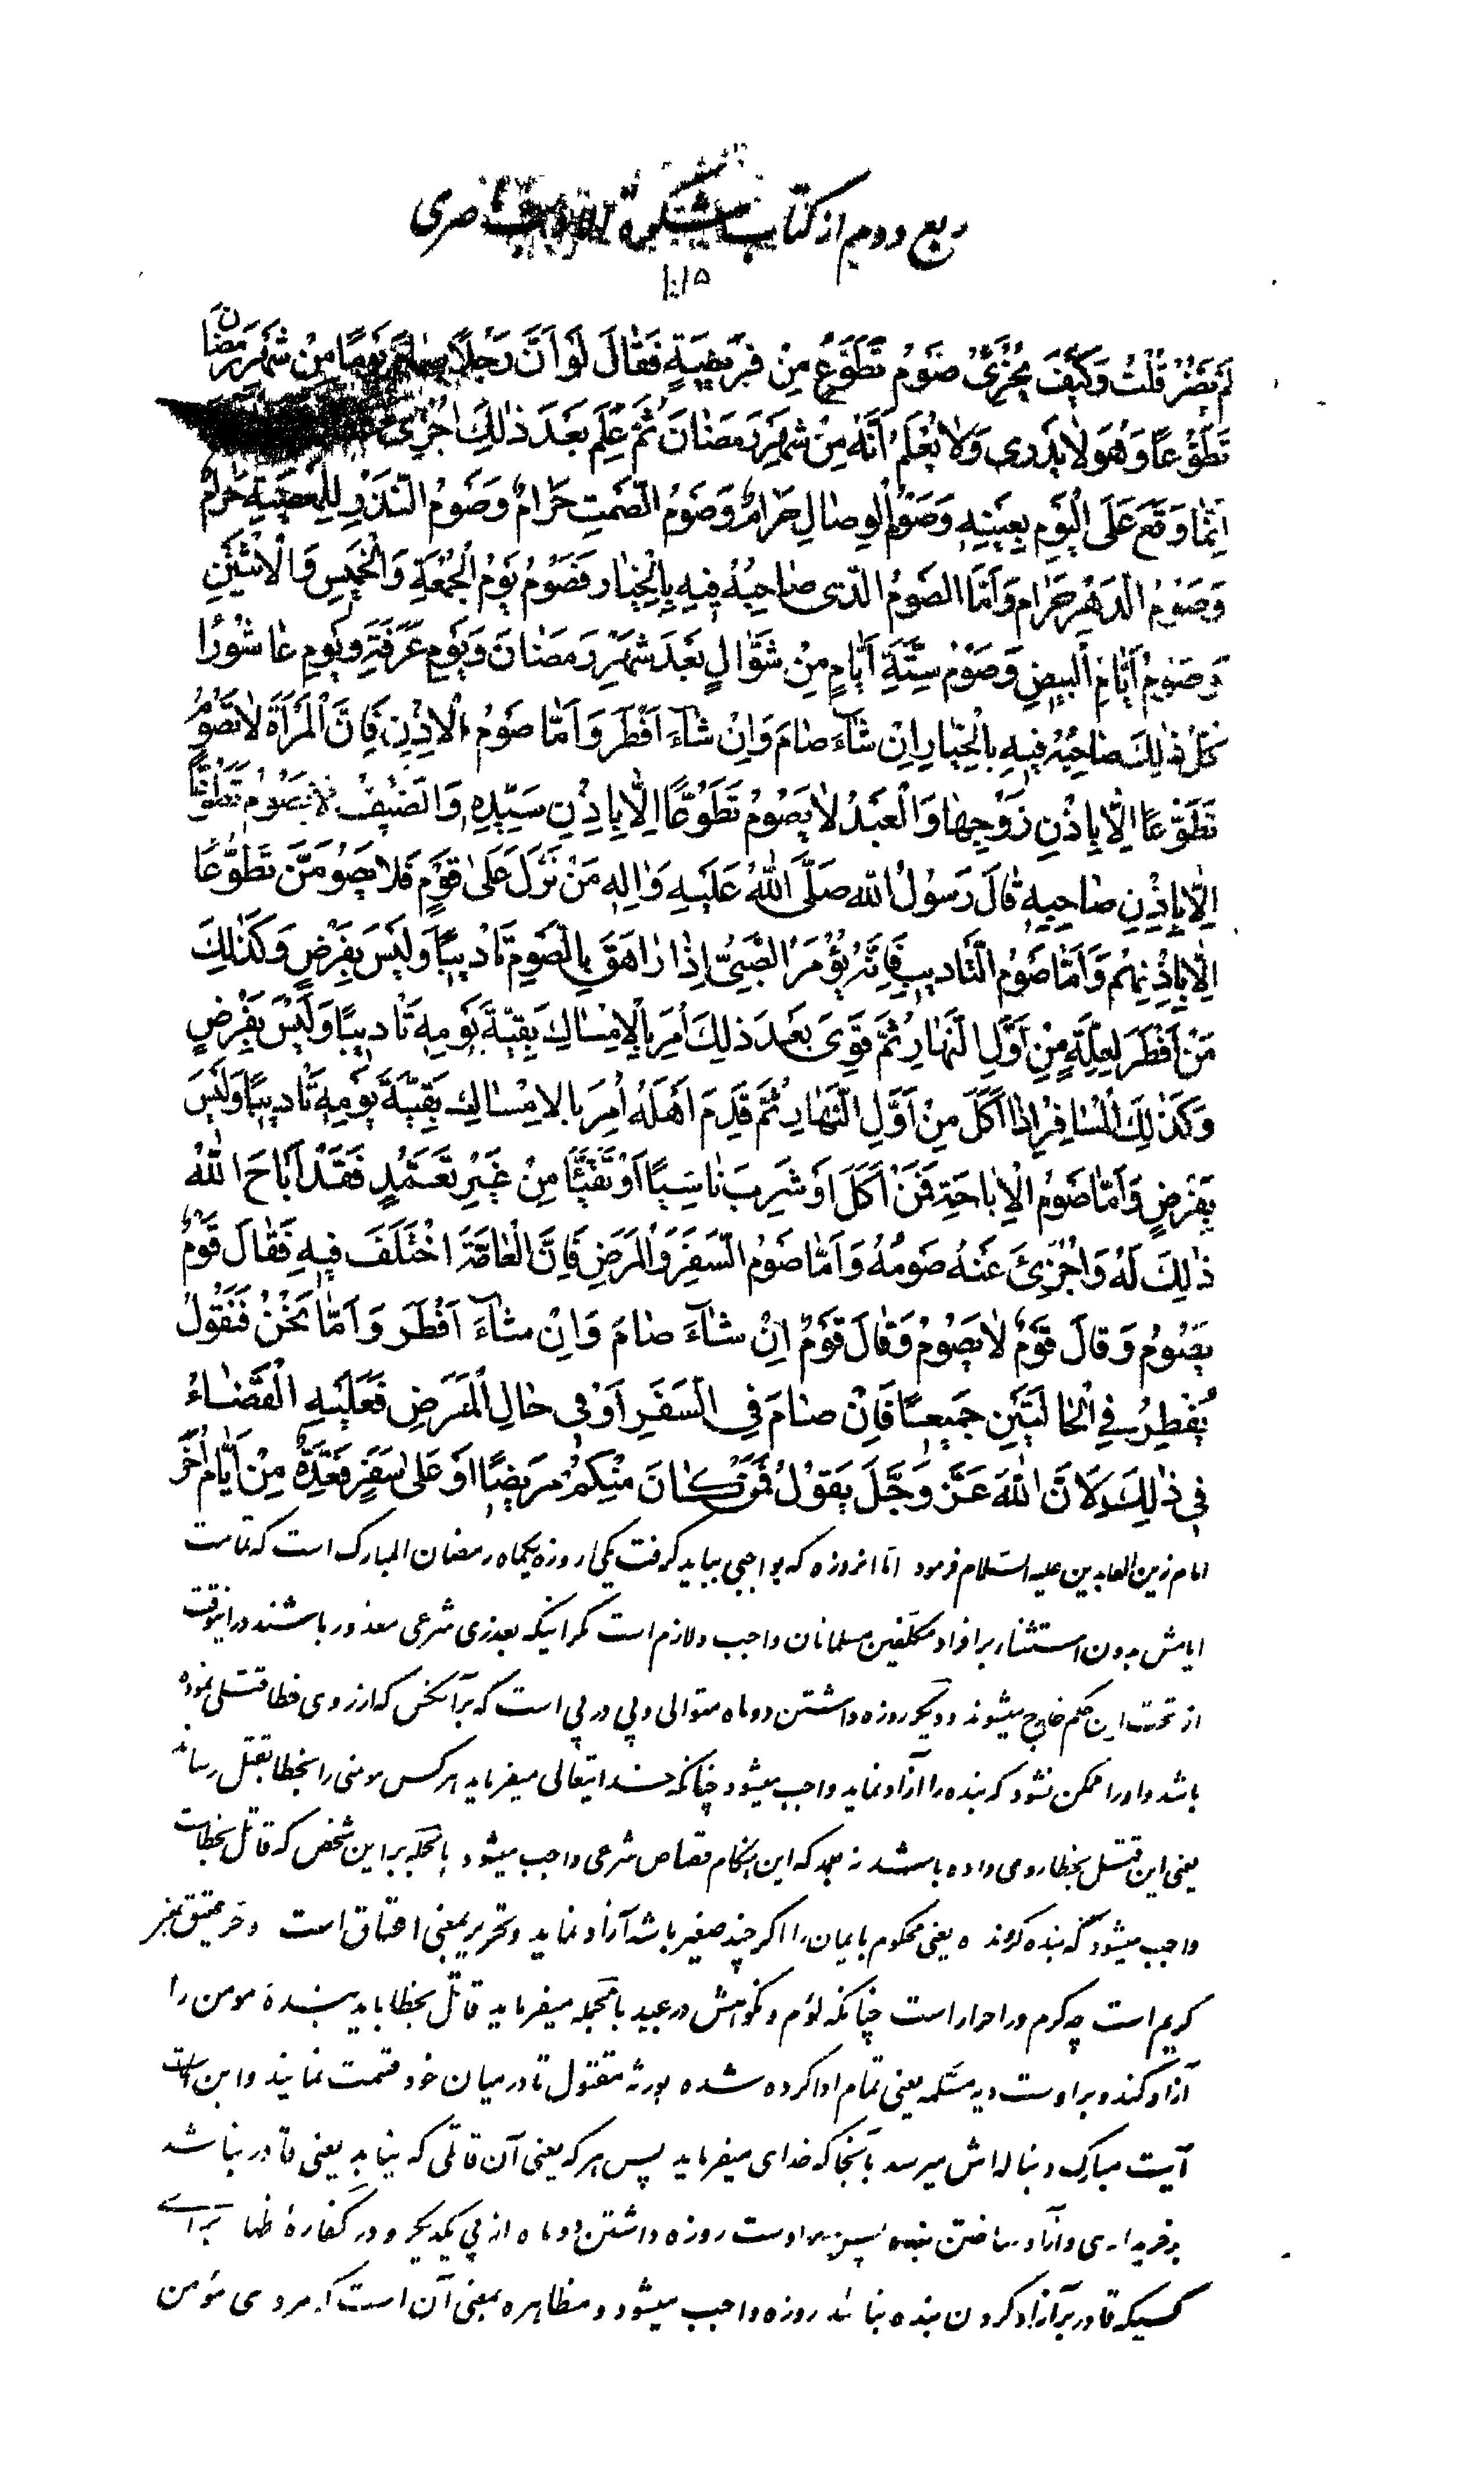 ربع دوم از کتاب مشکوة الادب ناصری
۱۰۱۵
لَمْ يَضُرَّ قُلْتُ وَكَيْفَ يُجْزِئُ صَوْمُ تَطَوُّعٍ مِنْ فَرِيضَةٍ فَقَالَ لَوْ اَنَّ رَجُلًا صَامَ يَوْمًا مِنْ شَهْرِ رَمَضَانَ
تَطَوُّعًا وَهُوَ لَا يَدْرِى وَلَا يَعْلَمُ اَنَّهُ مِنْ شَهْرِ رَمَضَانَ ثُمَّ عَلِمَ بَعْدَ ذٰلِكَ اُجْزِئَ
اِنَّمَا وَقَعَ عَلَى الْيَوْمِ بِعَيْنِهِ وَصَوْمُ الْوِصَالِ حَرَامٌ وَصَوْمُ الصَّمْتِ حَرَامٌ وَصَوْمُ النَّذْرِ لِلْمَعْصِيَةِ حَرَامٌ
وَصَوْمُ الدَّهْرِ حَرَام وَاَمَّا الصَّوْمُ الَّذِى صَاحِبُهُ فِيهِ بِالْخِيَارِ فَصَوْمُ يَوْمُ الْجُمُعَةِ وَالْخَمِيسِ وَالْاِثْنَيْنِ
وَصَوْمُ اَيَّامِ الْبِيضِ وَصَوْمُ سِتَّةِ اَيَّامٍ مِنْ شَوَّالٍ بَعْدَ شَهْرِ رَمَضَانَ وَيَوْمِ عَرَفَةَ وَيَوْمِ عَاشُورَا
كُلُّ ذٰلِكَ صَاحِبُهُ فِيهِ بِالْخِيَارِ اِنْ شَآءَ صَامَ وَاِنْ شَآءَ اَفْطَرَ وَاَمَّا صَوْمُ الْاِذْنِ فَاِنَّ الْمَرْأَةَ لَا تَصُومُ
تَطَوُّعًا اِلَّا بِاِذْنِ زَوْجِهَا وَالْعَبْدُ لَا يَصُومُ تَطَوُّعًا اِلَّا بِاِذْنِ سَيِّدِهِ وَالضَّيْفُ لَا يَصُومُ تَطَوُّعًا
اِلَّا بِاِذْنِ صَاحِبِهِ قَالَ رَسُولُ اللهِ صَلَّى اللهُ عَلَيْهِ وَاٰلِهِ مَنْ نَزَلَ عَلَى قَوْمٍ فَلَا يَصُومَنَّ تَطَوُّعًا
اِلَّا بِاِذْنِهِمْ وَاَمَّا صَوْمُ التَّادِيبِ فَاِنَّهُ يُؤْمَرُ الصَّبِىُّ اِذَا رَاهَقَ بِالصَّوْمِ تَادِيبًا وَلَيْسَ بِفَرْضٍ وَكَذٰلِكَ
مَنْ اَفْطَرَ لِعِلَّةٍ مِنْ اَوَّلِ النَّهَارِ ثُمَّ قَوِىَ بَعْدَ ذٰلِكَ اُمِرَ بِالْاِمْسَاكِ بَقِيَّةَ يَوْمِهِ تَأْدِيبًا وَلَيْسَ بِفَرْضٍ
وَكَذٰلِكَ الْمُسَافِرُ اِذَا اَكَلَ مِنْ اَوَّلِ النَّهَارِ ثُمَّ قَدِمَ اَهْلَهُ اُمِرَ بِالْاِمْسَاكِ بَقِيَّةَ يَوْمِهِ تَأْدِيبًا وَلَيْسَ
بِفَرْضٍ وَاَمَّا صَوْمُ الْاِبَاحَةِ فَمَنْ اَكَلَ اَوْ شَرِبَ نَاسِيًا اَوْ تَقَيَّأَ مِنْ غَيْرِ تَعَمُّدٍ فَقَدْ اَبَاحَ اللهُ
ذٰلِكَ لَهُ وَاُجْزِئَ عَنْهُ صَوْمُهُ وَاَمَّا صَوْمُ السَّفَرِ وَالْمَرَضِ فَاِنَّ الْعَامَّةَ اخْتَلَفَ فِيهِ فَقَالَ قَوْمٌ
يَصُومُ وَقَالَ قَوْمٌ لَا يَصُومُ وَقَالَ قَوْمٌ اِنْ شَآءَ صَامَ وَاِنْ شَآءَ اَفْطَرَ وَاَمَّا نَحْنُ فَنَقُولُ
يُفْطِرُ فِى الْحَالَتَيْنِ جَمِيعًا فَاِنْ صَامَ فِى السَّفَرِ اَوْ فِى حَالِ الْمَرَضِ فَعَلَيْهِ الْقَضَاءُ
فِى ذٰلِكَ لِاَنَّ اللهَ عَزَّ وَجَلَّ يَقُولُ فَمَنْ كَانَ مِنْكُمْ مَرِيضًا اَوْ عَلَى سَفَرٍ فَعِدَّةٌ مِنْ اَيَّامٍ اُخَرَ
امام زین العابدین علیه السلام فرمود اما انروزه که بواجبی بباید گرفت یکی روزه یکماه رمضان المبارک است که تمامت
ایامش بدون استثنا بر افراد مکلفین مسلمانان واجب و لازم است مگر اینکه بعذری شرعی معذور باشند در اینوقت
از تحت این حکم خارج میشوند و دیگر روزه داشتن دو ماه متوالی و پی در پی است که بر آنکس که از روی خطا قتلی نموده
باشد و او را ممکن نشود که بنده را آزاد نماید واجب میشود چنانکه خدایتعالی میفرماید هر کس مومنی را بخطا بقتل رساند
یعنی این قتل بخطا روی داده باشد نه بعمد که این هنگام قصاص شرعی واجب میشود بالجمله بر این شخص که قاتل بخطاست
واجب میشود که بنده گرونده یعنی محکوم بایمان را اگر چند صغیر باشد آزاد نماید و تحریر بمعنی اعتاق است و حر عتیق
کریم است چه کرم در احرار است چنانکه لؤم و نکوهش در عبید بالجمله میفرماید قاتل بخطا باید بنده مومن را
آزاد کند و بر اوست دیه مسلمه یعنی تمام ادا کرده شده بورثه مقتول تا در میان خود قسمت نمایند و این
آیت مبارک دنباله‌اش میرسد بآنجا که خدای میفرماید پس هر که یعنی آن قاتلی که نیابد یعنی قادر نباشد
بخریداری و آزاد ساختن بنده پس بر اوست روزه داشتن دو ماه از پی یکدیگر و در کفاره ظهار برای
کسیکه قادر بر آزاد کردن بنده نباشد روزه واجب میشود و مظاهره بمعنی آن است که مردی مؤمن